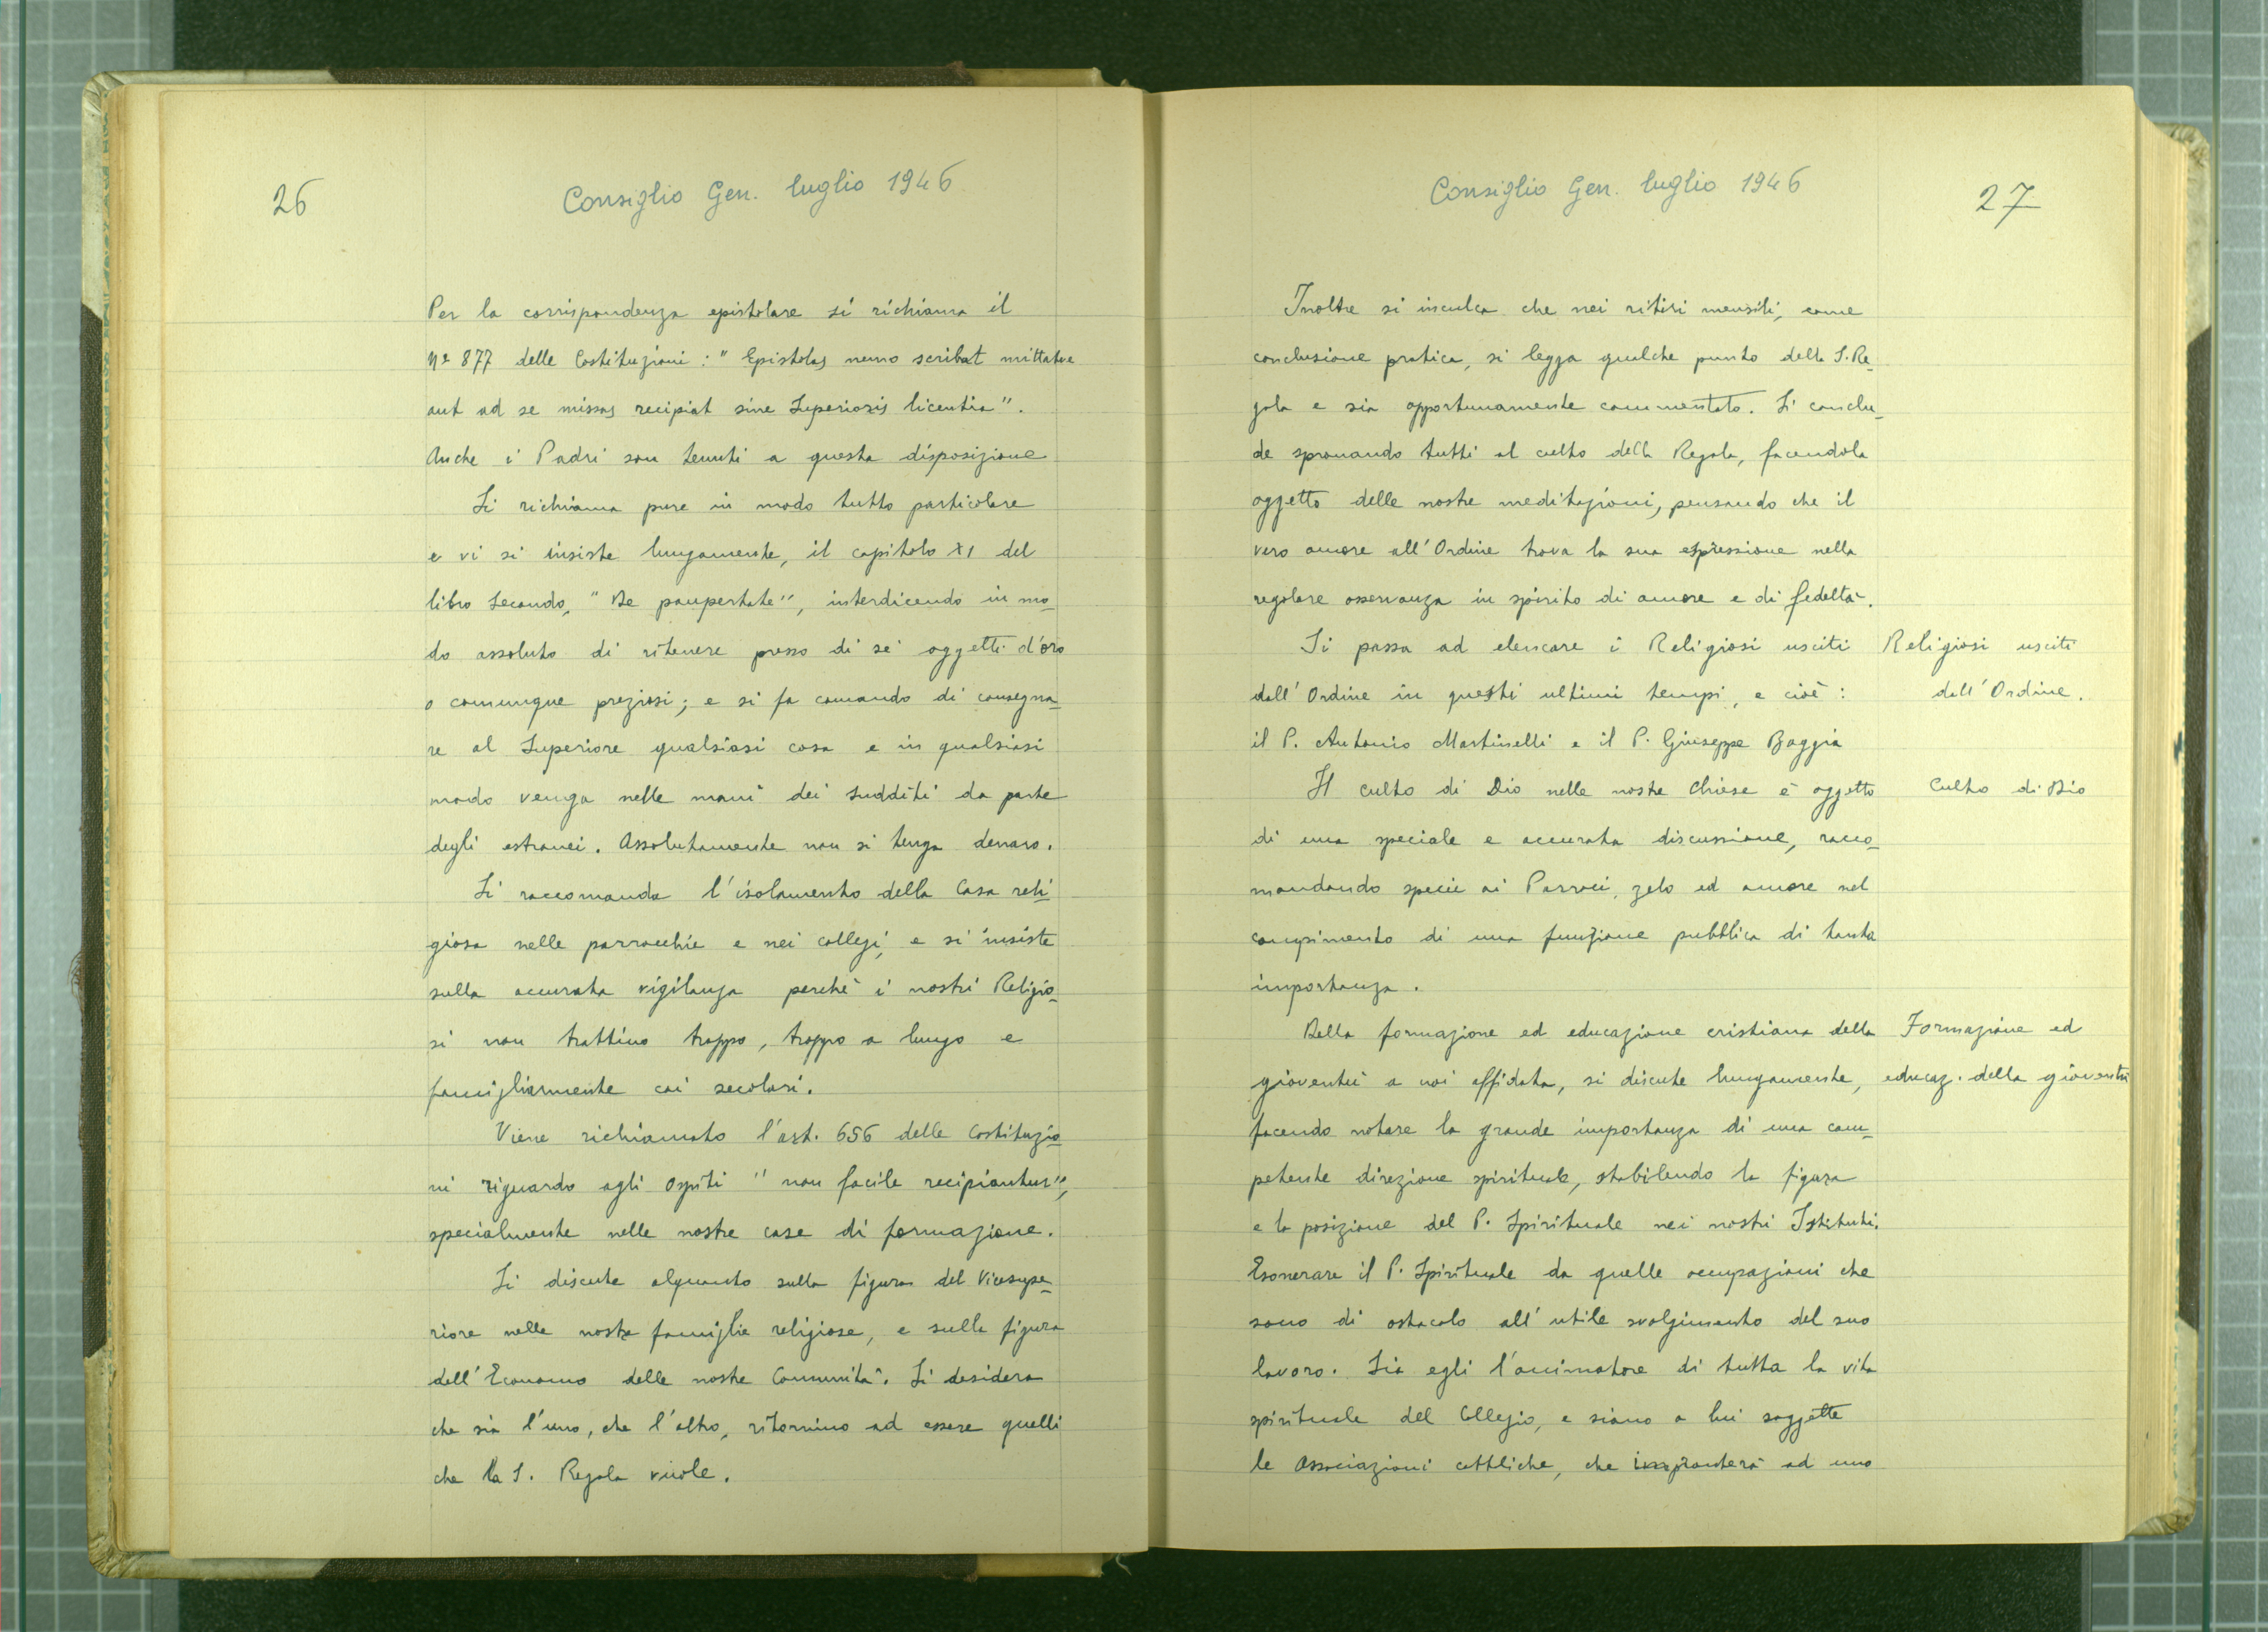 26
Consiglio Gen. luglio 1946
Per la corrispondenza epistolare si richiama il
Nº 877 delle Costituzioni : " Epistolas nemo scribat mittatve
aut ad se missas recipiat sine Superioris licentia ".
Anche i Padri son tenuti a questa disposizione
Si richiama pure in modo tutto particolare
e vi si insiste lungamente, il capitolo XI del
libro secondo, " De paupertate ", interdicendo in mo_
do assoluto di ritenere presso di sé oggetti d'oro
o comunque preziosi ; e si fa comando di consegna_
re al Superiore qualsiasi cosa e in qualsiasi
modo venga nelle mani dei sudditi da parte
degli estranei. Assolutamente non si tenga denaro.
Si raccomanda l'isolamento della Casa reli_
giosa nelle parrocchie e nei collegi, e si insiste
sulla accurata vigilanza perchè i nostri Religio_
si non trattino troppo, troppo a lungo e
famigliarmente coi secolari.
Viene richiamato l'art. 656 delle Costituzio_
ni riguardo agli ospiti " non facile recipiantur ",
specialmente nelle nostre case di formazione.
Si discute alquanto sulla figura del Vicesupe_
riore nelle nostre famiglie religiose, e sulla figura
dell'Economo delle nostre Comunità. Si desidera
che sia l'uno, che l'altro, ritornino ad essere quelli
che la S. Regola vuole.
Consiglio Gen. luglio 1946
27
Inoltre si inculca che nei ritiri mensili, come
conclusione pratica, si legga qualche punto della S. Re_
gola e sia opportunamente commentato. Si conclu_
de spronando tutti al culto della Regola, facendola
oggetto delle nostre meditazioni, pensando che il
vero amore all'Ordine trova la sua espressione nella
regolare osservanza in spirito di amore e di fedeltà.
Si passa ad elencare i Religiosi usciti
dall'Ordine in questi ultimi tempi, e cioè :
il P. Antonio Martinelli e il P. Giuseppe Baggia
Religiosi usciti
dall'Ordine.
Il culto di Dio nelle nostre Chiese è oggetto
di una speciale e accurata discussione, racco_
mandando specie ai Parroci, zelo ed amore nel
compimento di una funzione pubblica di tanta
importanza.
Culto di Dio
Della formazione ed educazione cristiana della
gioventù a noi affidata, si discute lungamente,
facendo notare la grande importanza di una com_
petente direzione spirituale, stabilendo la figura
e la posizione del P. Spirituale nei nostri Istituti.
Esonerare il P. Spirituale da quelle occupazioni che
sono di ostacolo all'utile svolgimento del suo
lavoro. Sia egli l'animatore di tutta la vita
spirituale del Collegio, e siano a lui soggette
le Associazioni cattliche, che impronterà ad uno
Formazione ed
educaz. della gioventù